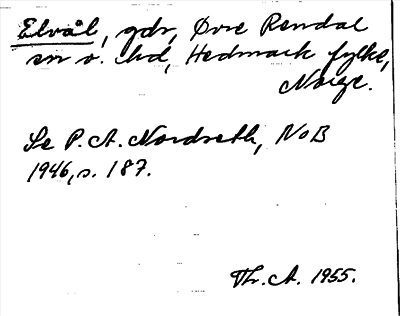 Elvål, gdr, Øvre Rendal
sn o. hd, Hedmark fylke,
Norge.
Se P. A. Nordseth, NoB
1946, s. 187.
Th. A. 1955.